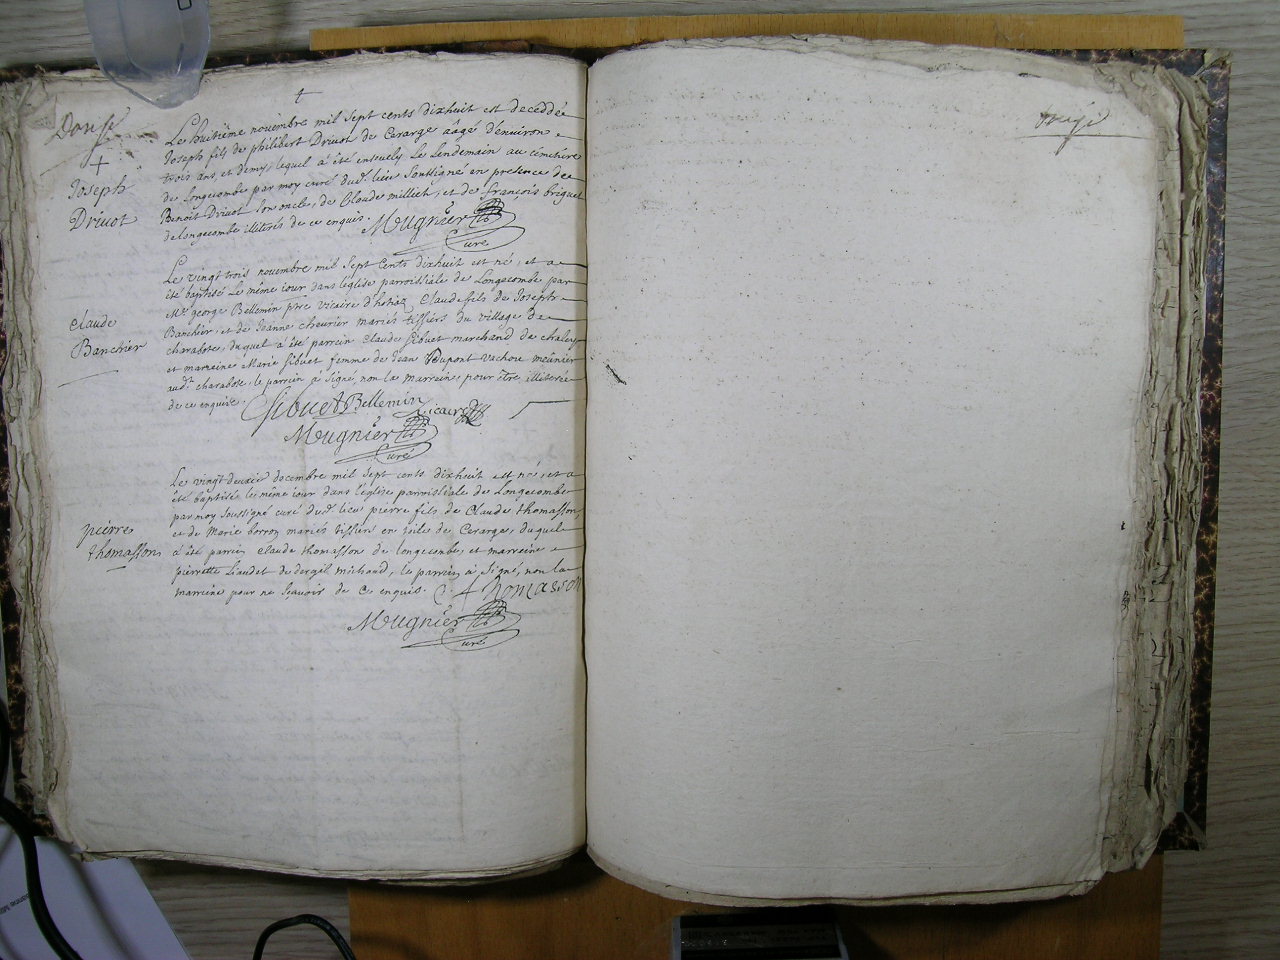 Le huitième novembre mil sept cents dixhuit est deceddé
Joseph fils de philibert Driuot de Cerarge aâgé d'enuiron
trois ans et demy, lequel à été enseuely le lendemain au cémétiere
de Longecombe par moy curé dud.t lieu soussigné en presence de
Benoît Driuot son oncle, de Claude millieh, et de françois briguet
de longecombe illiterés de ce enquis. Mugnier
Curé
Joseph
Driuot
Le vingt trois nouembre mil sept Cents dixhuit est né, et a
été baptisé le même iour dans l'eglise parroissiale de Longecombe par
M.re george Bellemin p.tre vicaire d'hotiaz Claude fils de Joseph
Banchier, et de Jeanne cheurier mariés tissiers du village de
charabote, duquel a été parrein Claude Sibuet marchand de chaley
et marreine Marie Sibuet femme de Jean Dupont vachon meûnier
aud.t charabote, le parrein à signé non la marreine, pour être illiterée
de ce enquise. C Sibuet Bellemin Vicaire
Mugnier
Curé
claude
Banchier
Le vingt deuxiè decembre mil sept cents dixhuit est né, et a
été baptisée le même iour dans l'eglise parroissiale de Longecombe
par moy soussigné curé dud.t lieu pierre fils de Claude thomasson,
et de Marie borron mariés tissiers en toile de Cerarge, duquel
à été parrein claude thomasson de longecombe, et marreine
pierrette Liaudet de dergil michaud, le parrein à signé, non la
marreine pour ne sçauoir de ce enquis. C. thomasson
Mugnier
Curé
pierre
thomasson